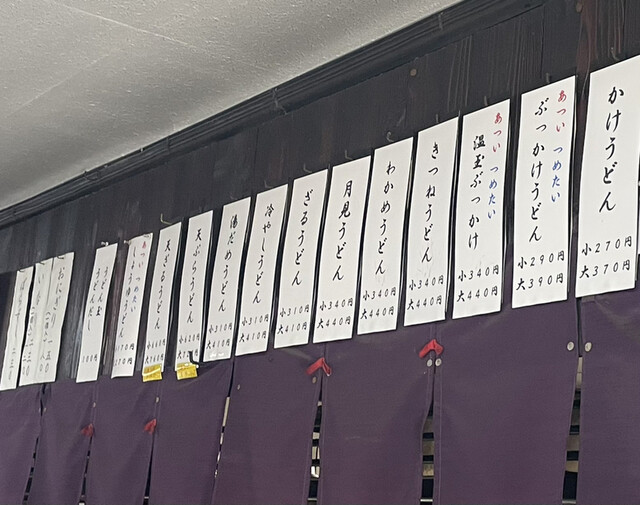 かけうどん
小270円
大370円
あつい つめたい
ぶっかけうどん
小290円
大390円
あつい つめたい
温玉ぶっかけ
小340円
大440円
きつねうどん
小340円
大440円
わかめうどん
小340円
大440円
月見うどん
小340円
大440円
ざるうどん
小310円
大410円
冷やしうどん
小310円
大410円
湯だめうどん
小310円
大410円
天ぷらうどん
天ざるうどん
あつい つめたい
しょうゆうどん
うどん玉
うどんだし